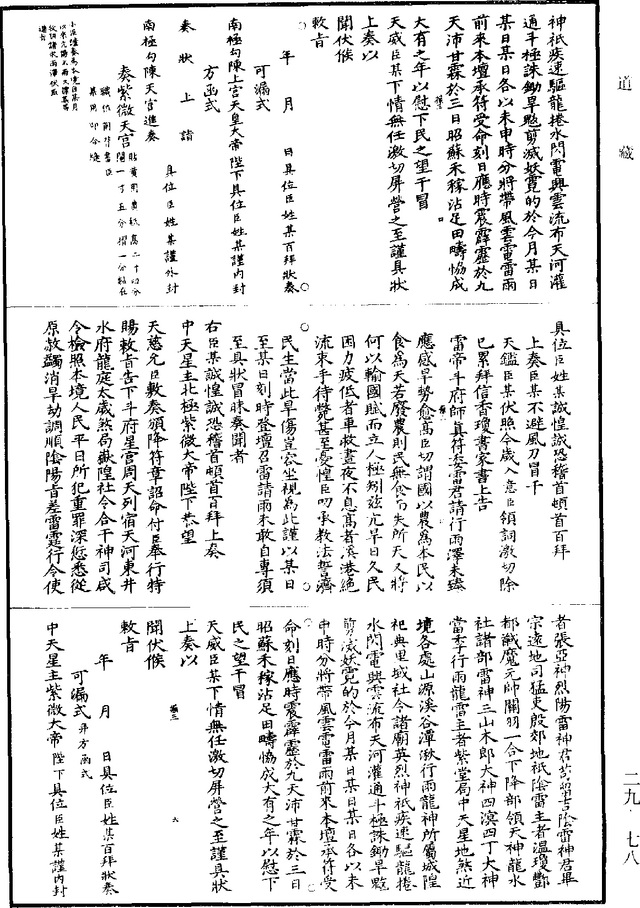 道藏
神祇疾速驅龍捲水閃電興雲流布天河灌
通斗極誅鋤旱魃剪滅妖氛的於今月某日
某日某日各以未申時分將帶風雲雷電雷雨
前來本壇承符受命刻日應時震霹靂於九
天沛甘霖於三日昭蘇禾稼沾足田疇恊成
大有之年以慰下民之望干冒
天威臣某下情無任激切屏營之至謹具狀
上奏以
聞伏候
敕旨
年 月 日具位臣姓某百拜狀奏
可漏式
南極勾陳上宮天皇大帝陛下具位臣姓某謹內封
方函式
奏狀上請
具位臣姓某謹外封
南極勾陳天宮進奏
奏紫微天宮
具位臣姓某誠惶誠恐稽首頓首百拜
上奏臣某不避風刀冒干
天鑑臣某伏照今歲入意臣領詞激切除
已累拜信香瓊書家書上告
雷帝斗府師真符委雷君請行雨澤未臻
應感旱勢愈高臣切謂國以農爲本民以
食爲天若廢農則民無食而失所天又將
何以輸國賦而立人極矧茲亢旱日久民
困力疲低者車救晝夜不息高者溪港絕
流束手待斃甚至憂惶臣叨承教法誓濟
民生當此旱傷豈容坐視爲此謹以某日
至某日刻時登壇召雷請雨未敢自專須
至具狀冒昧奏聞者
右臣某誠惶誠恐稽首頓首百拜上奏
中天星主北極紫微大帝陛下恭望
天慈允臣敷奏頒降符章詔命付臣奉行特
賜敕旨告下斗府星宮周天列宿天河東井
水府龍庭太歲煞局嶽隍社令合干神司咸
令檢照本境人民平日所犯重罪深愆悉從
原赦蠲消旱劫調順陰陽旨差雷霆行令使
者張亞神烈陽雷神君苟留吉陰雷神君畢
宗遠地司猛吏殷郊地祇陰雷主者溫瓊酆
都馘魔元帥關羽一合下降部領天神龍水
社諸部雷神三山木郎大神四溟四丁大神
當季行雨龍雷主者紫堂局中天星地煞近
境各處山源溪谷潭湫行雨龍神所屬城隍
祀典里域社令諸廟英烈神祇疾速驅龍捲
水閃電興雲流布天河灌通斗極誅鋤旱魃
剪滅妖氛的於今月某日某日某日各以未
申時分將帶風雲電雷雨前來本壇承符受
命刻日應時震霹靂於九天沛甘霖於三日
昭蘇禾稼沾足田疇恊成大有之年以慰下
民之望干冒
天威臣某下情無任激切屏營之至謹具狀
上奏以
聞伏候
敕旨
年 月 日具位臣姓某百拜狀奏
可漏式并方函式
中天星主紫微大帝陛下具位臣姓某謹內封
二九·七八